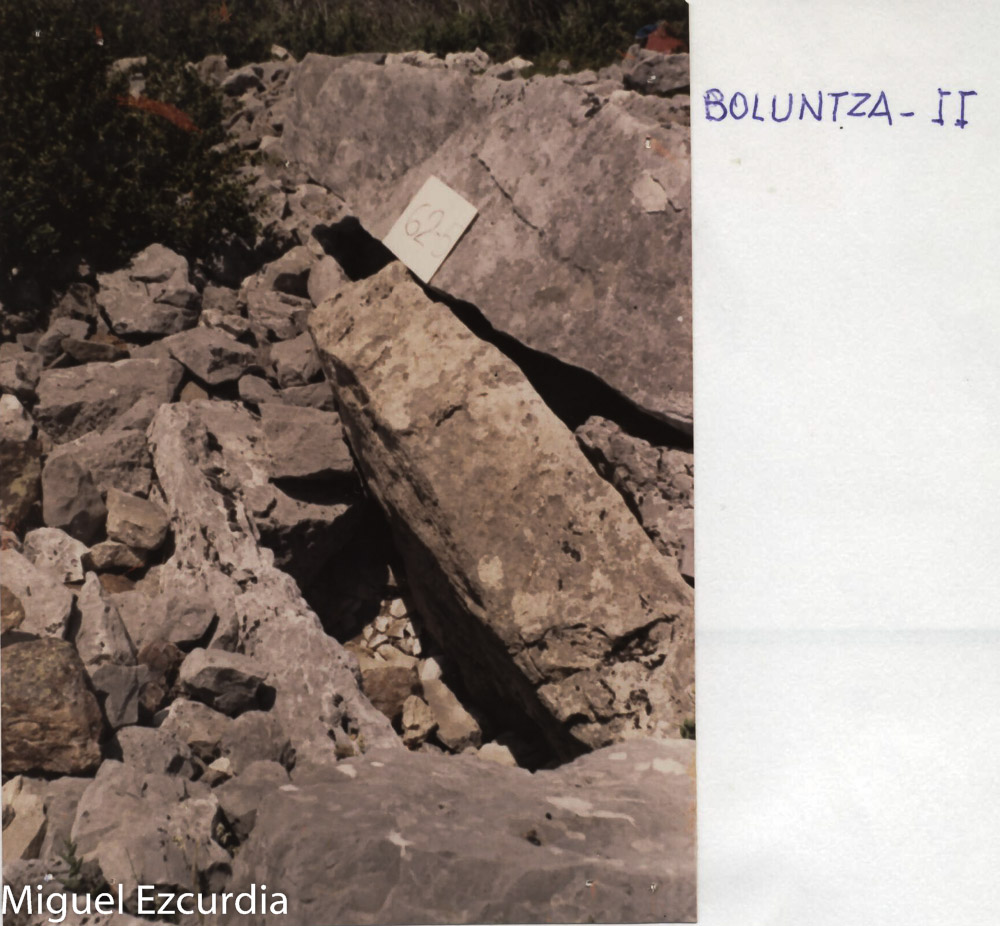 BOLUNTZA - II
62-5
Miguel Ezcurdia